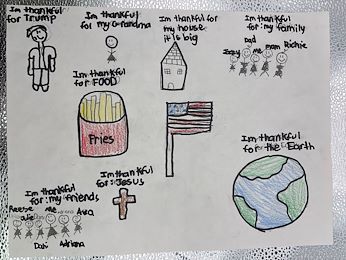 Im thankful
for Trump
Im thankful
for my Grandma
Im thankful for
my house
it is big
Im thankful
for: my family
Dad
Izzy
me
mom
Richie
Im thankful
for FOOD
Fries
Im thankful
for the Earth
Im thankful
for: Jesus
Im thankful
for: my friends
Reese
me
Ava
Adriana